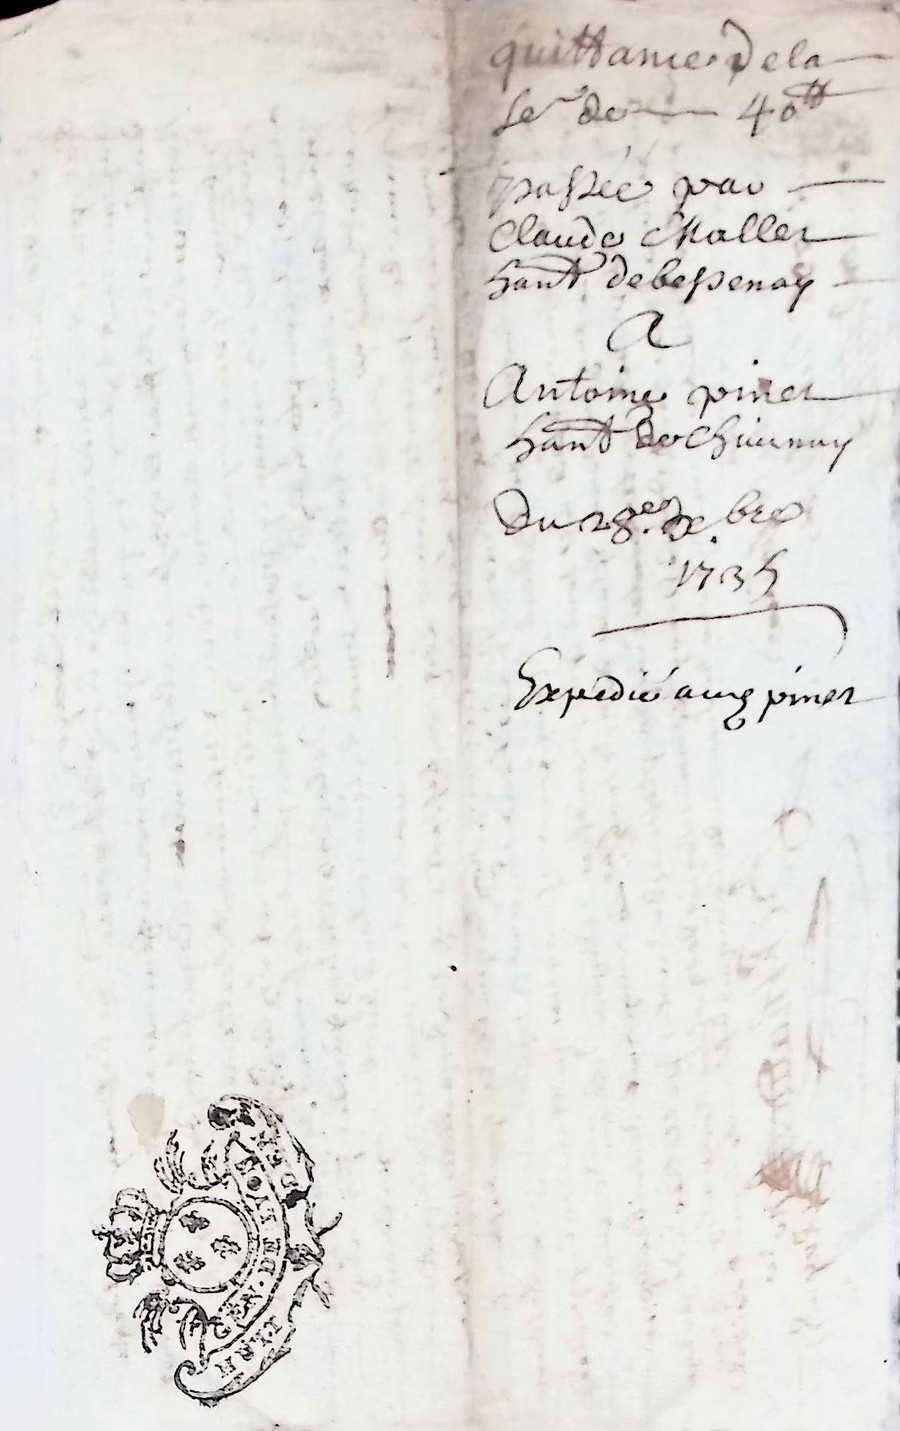 quittance de la
So.e de 40tt
passée par
Claude Choller
hant de bessenay
A
Antoine piner
hant de
Du 28e Xbre
1735
Expedié aud piner
GEN. DE LYON